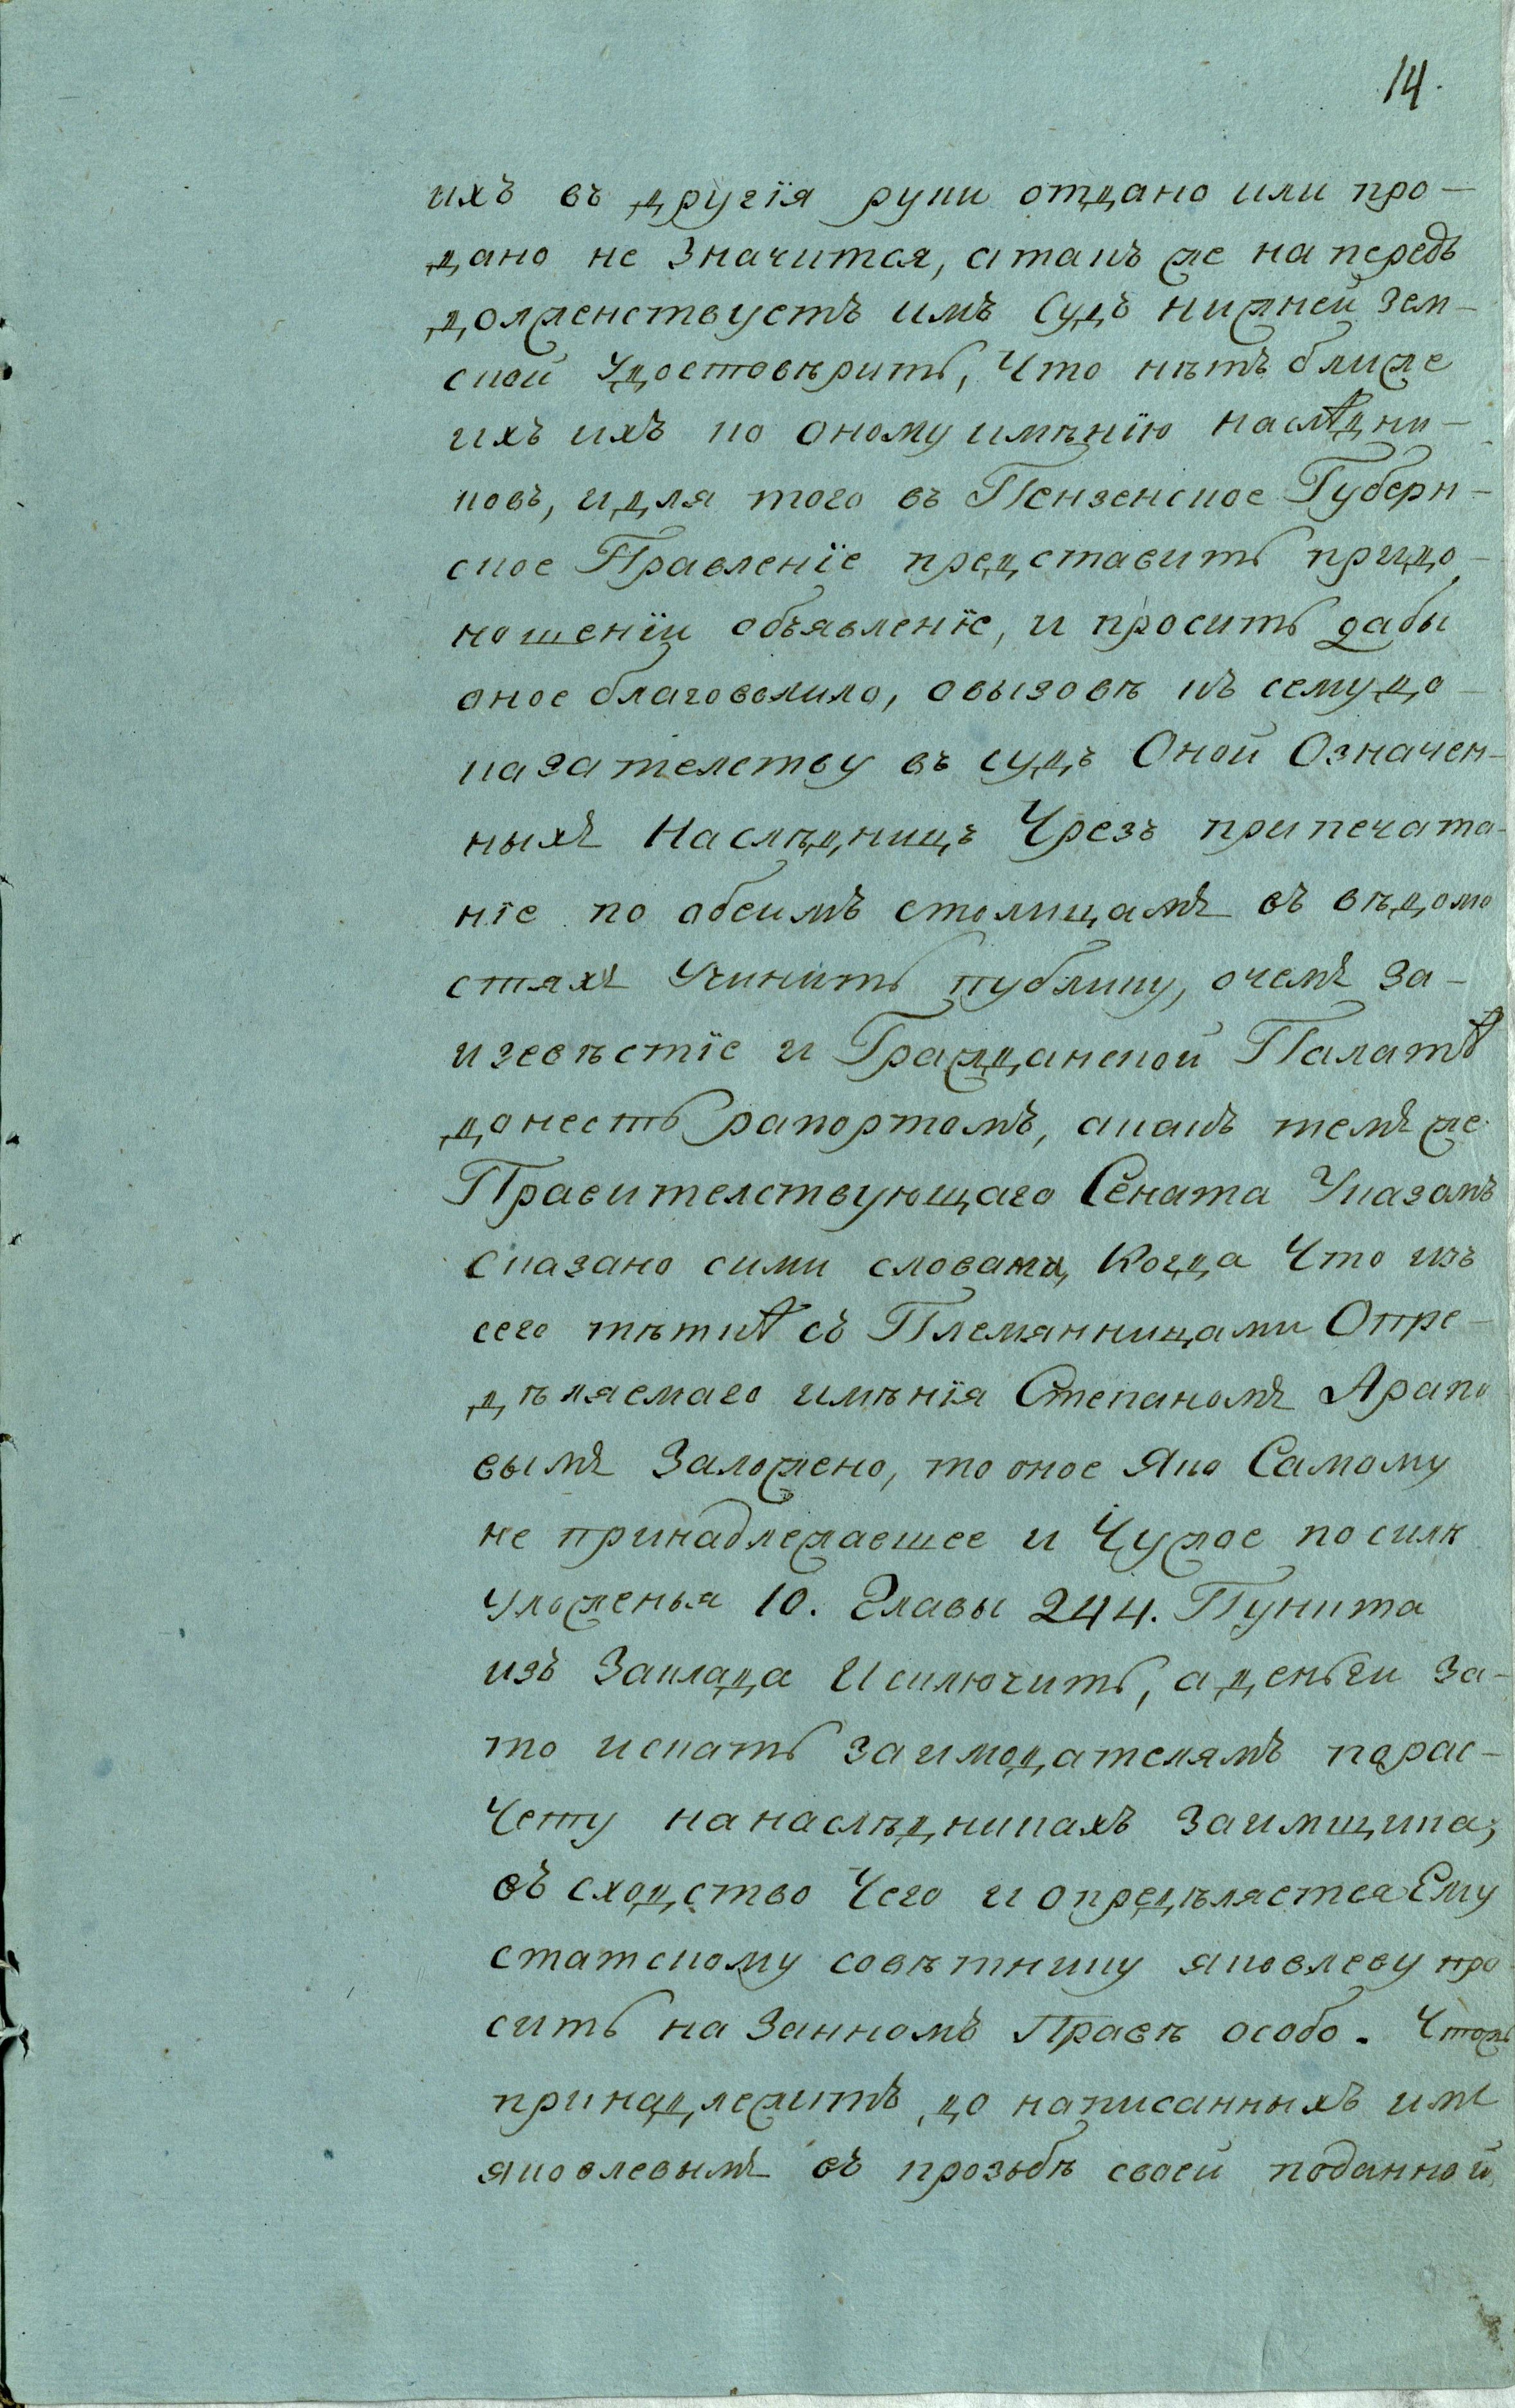 14.
ихъ въ другія руки отдано или про-
дано не значится, а такъ же на передъ
долженствуетъ имъ судъ нижней зем-
ской удостовѣрить, что нѣтъ ближе
ихъ ихъ по оному имѣнїю наслѣдни-
ковъ, и для того въ Пензенское Губерн-
ское Правленїе представить при до-
ношенїи объявленїе, и просить дабы
оное благоволило, о вызовѣ къ сему до-
казателству въ судъ Оной Означен-
ныхъ Наслѣдницъ Чрезъ припечата-
нїе по обеимъ столицамъ въ вѣдомо
стяхъ Учинить публику, о чемъ за-
извѣстїе и Гражданской Палатѣ
донесть рапортомъ, а какъ темъ же
Правителствующаго Сената Указомъ
сказано сими словами, Когда Что изъ
сего тѣткѣ съ Племянницами Опре-
дѣляемаго имѣнїя Степаномъ Арапо
вымъ Заложено, то оное Яко Самому
не принадлежавшее и Чужое по силѣ
уложенья 10. Главы 244. Пункта
изъ Заклада Исключить, а деньги за-
то искать заимодателямъ по рас-
Чету на наслѣдникахъ Заимщика,
въ сходство Чего и опредѣляется Ему
статскому совѣтнику яковлеву про
сить на Законномъ Правѣ особо. Чтожъ
принадлежитъ до написанныхъ имъ
яковлевымъ въ прозьбѣ своей поданной